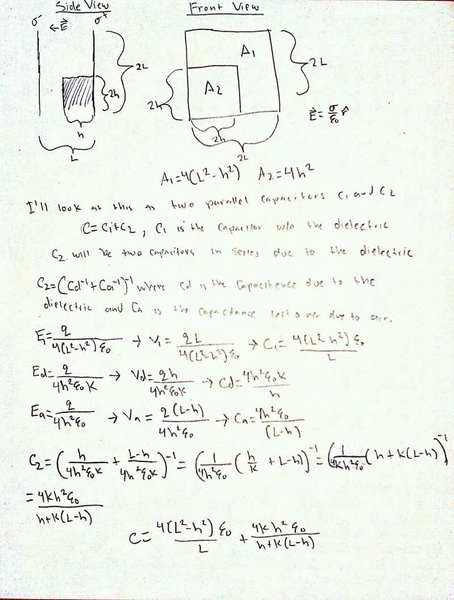 Side View Front View
σ⁻ ←E⃗ σ⁺
A₁
A₂
2L
2h
2L
2h
h
L
2h
2L
E⃗ = σ/ε₀ r̂
A₁=4(L²-h²) A₂=4h²
I'll look at this as two parallel capacitors C₁ and C₂
C=C₁+C₂, C₁ is the capacitor w/o the dielectric
C₂ will be two capacitors in series due to the dielectric
C₂=(Cd⁻¹+Ca⁻¹)⁻¹ where Cd is the capacitence due to the
dielectric and Ca is the capacitance due to air.
E₁=q/4(L²-h²)ε₀ → V₁=qL/4(L²-h²)ε₀ → C₁=4(L²-h²)ε₀/L
Ed=q/4h²ε₀K → Vd=qh/4h²ε₀K → Cd=4h²ε₀K/h
Ea=q/4h²ε₀ → Va=q(L-h)/4h²ε₀ → Ca=4h²ε₀/(L-h)
C₂=(h/4h²ε₀K + L-h/4h²ε₀K)⁻¹=(1/4h²ε₀(h/K + L-h))⁻¹=(1/4Kh²ε₀(h+K(L-h)))⁻¹
=4Kh²ε₀/h+K(L-h)
C=4(L²-h²)ε₀/L + 4Kh²ε₀/h+K(L-h)